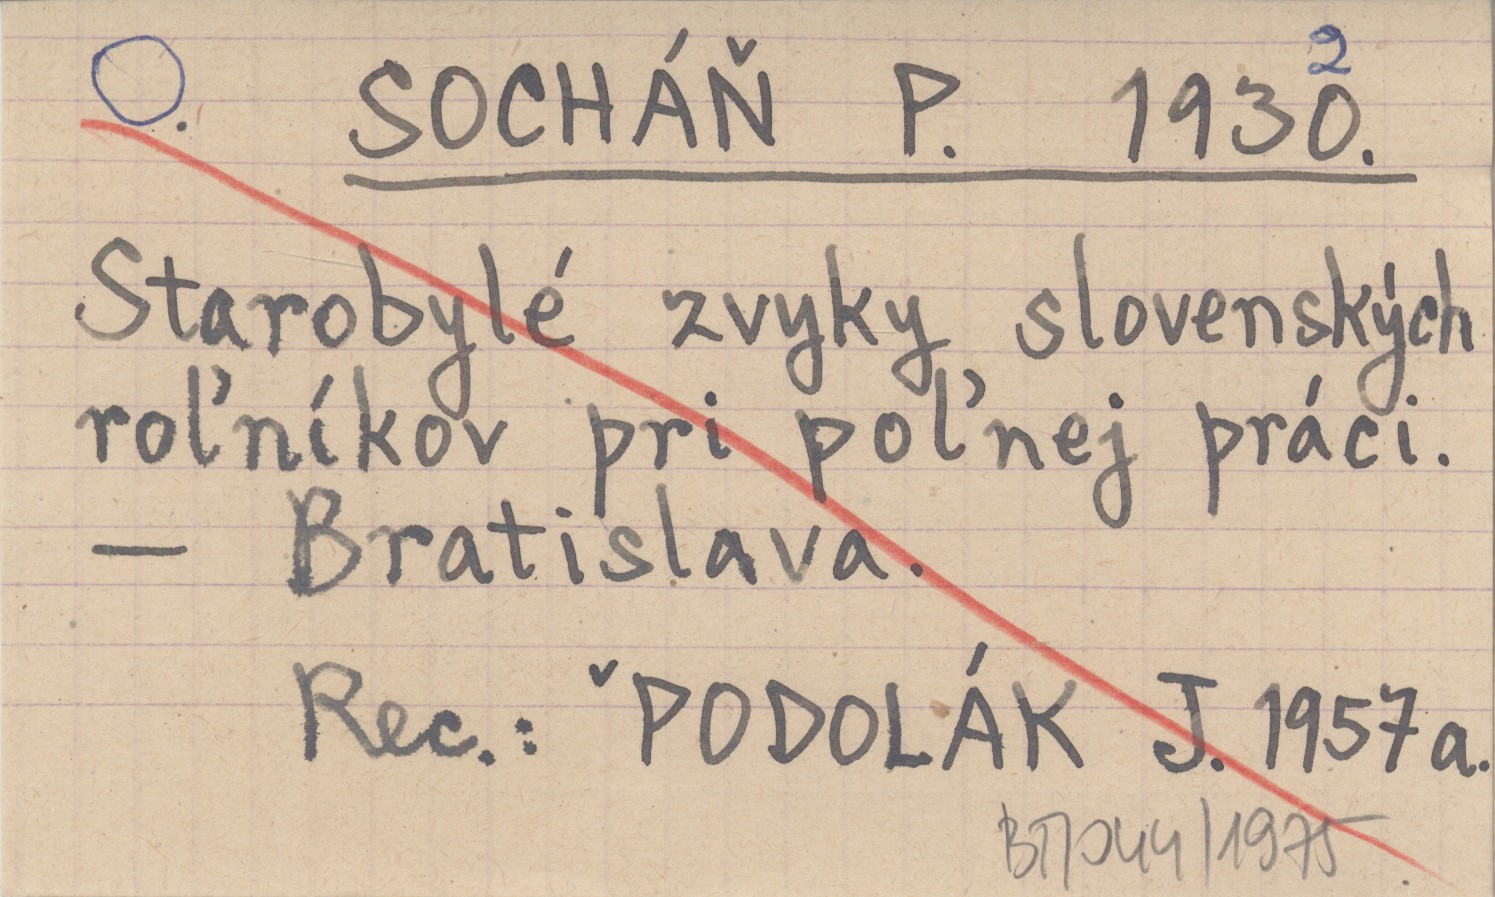 SOCHÁŇ P. 1930.
2
Starobylé zvyky slovenských
roľníkov pri poľnej práci.
— Bratislava.
Rec.: ˇPODOLÁK J. 1957a.
/1975